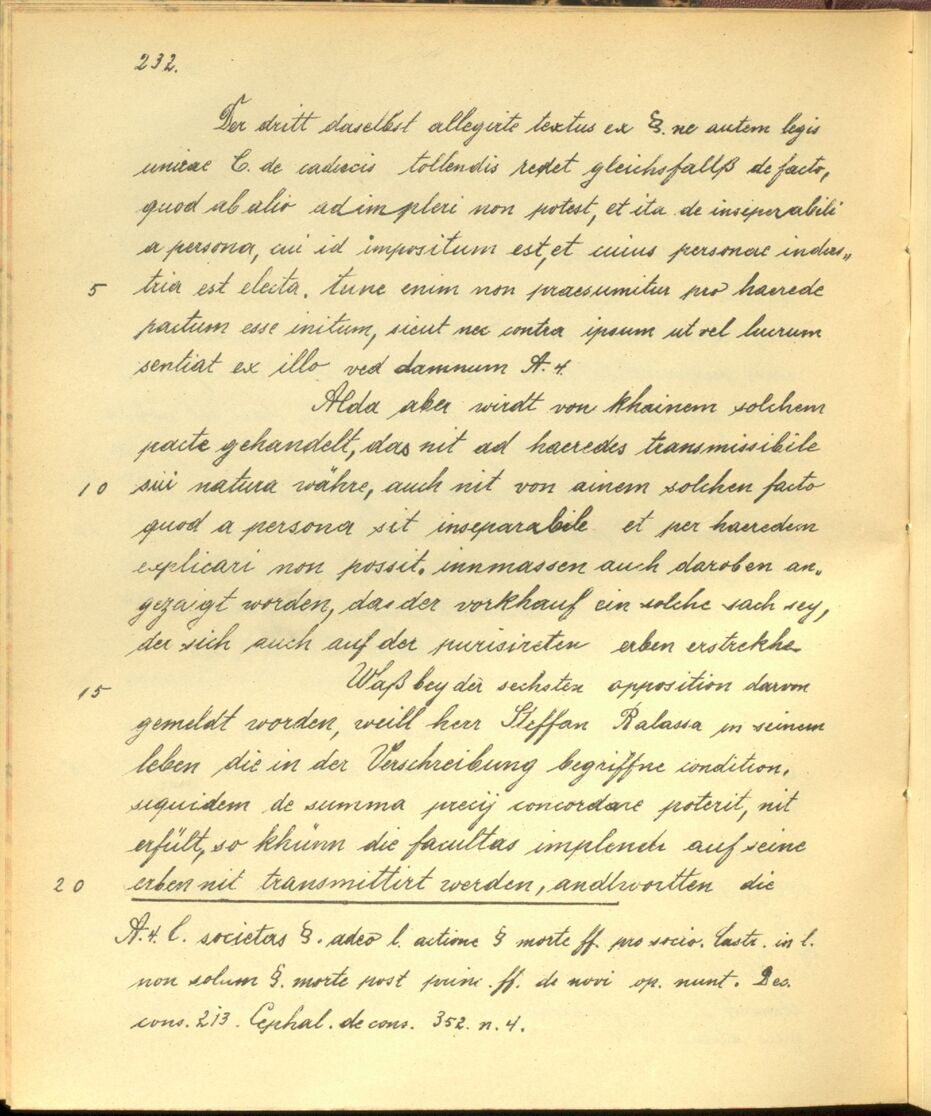 232.
Der dritt daselbst allegirte textus ex §. ne autem legis
unicae C. de caducis tollendis redet gleichsfallß de facto,
quod ab alio adimpleri non potest, et ita de inseperabili
a persona, cui id impositum est, et cuius personae indus„
5 tria est electa. tunc enim non praesumitur pro haerede
pactum esse initum, sicut nec contra ipsum ut vel lucrum
sentiat ex illo ved damnum A. 4.
Alda aber wirdt von khainem solchem
pacte gehandelt, das nit ad haeredes transmissibile
10 sui natura währe, auch nit von ainem solchen facto
quod a persona sit inseparabile et per haeredem
explicari non possit. innmassen auch daroben an„
gezaigt worden, das der vorkhauf ein solche sach sey,
der sich auch auf der purisireten erben erstrekhe.
15 Waß bey der sechsten opposition darvon
gemeldt worden, weill herr Steffan Balassa in seinem
leben die in der Verschreibung begriffne condition.
siquidem de summa precij concordare poterit, nit
erfült, so khünn die facultas implendi auf seine
20 erben nit transmittirt werden, andtwortten die
A. 4. l. societas §. adeo l. actione § morte ff. pro socio. Castr. in l.
non solum §. morte post princ. ff. de novi op. nunt. Des.
cons. 213. Cephal. de cons. 352. n. 4.